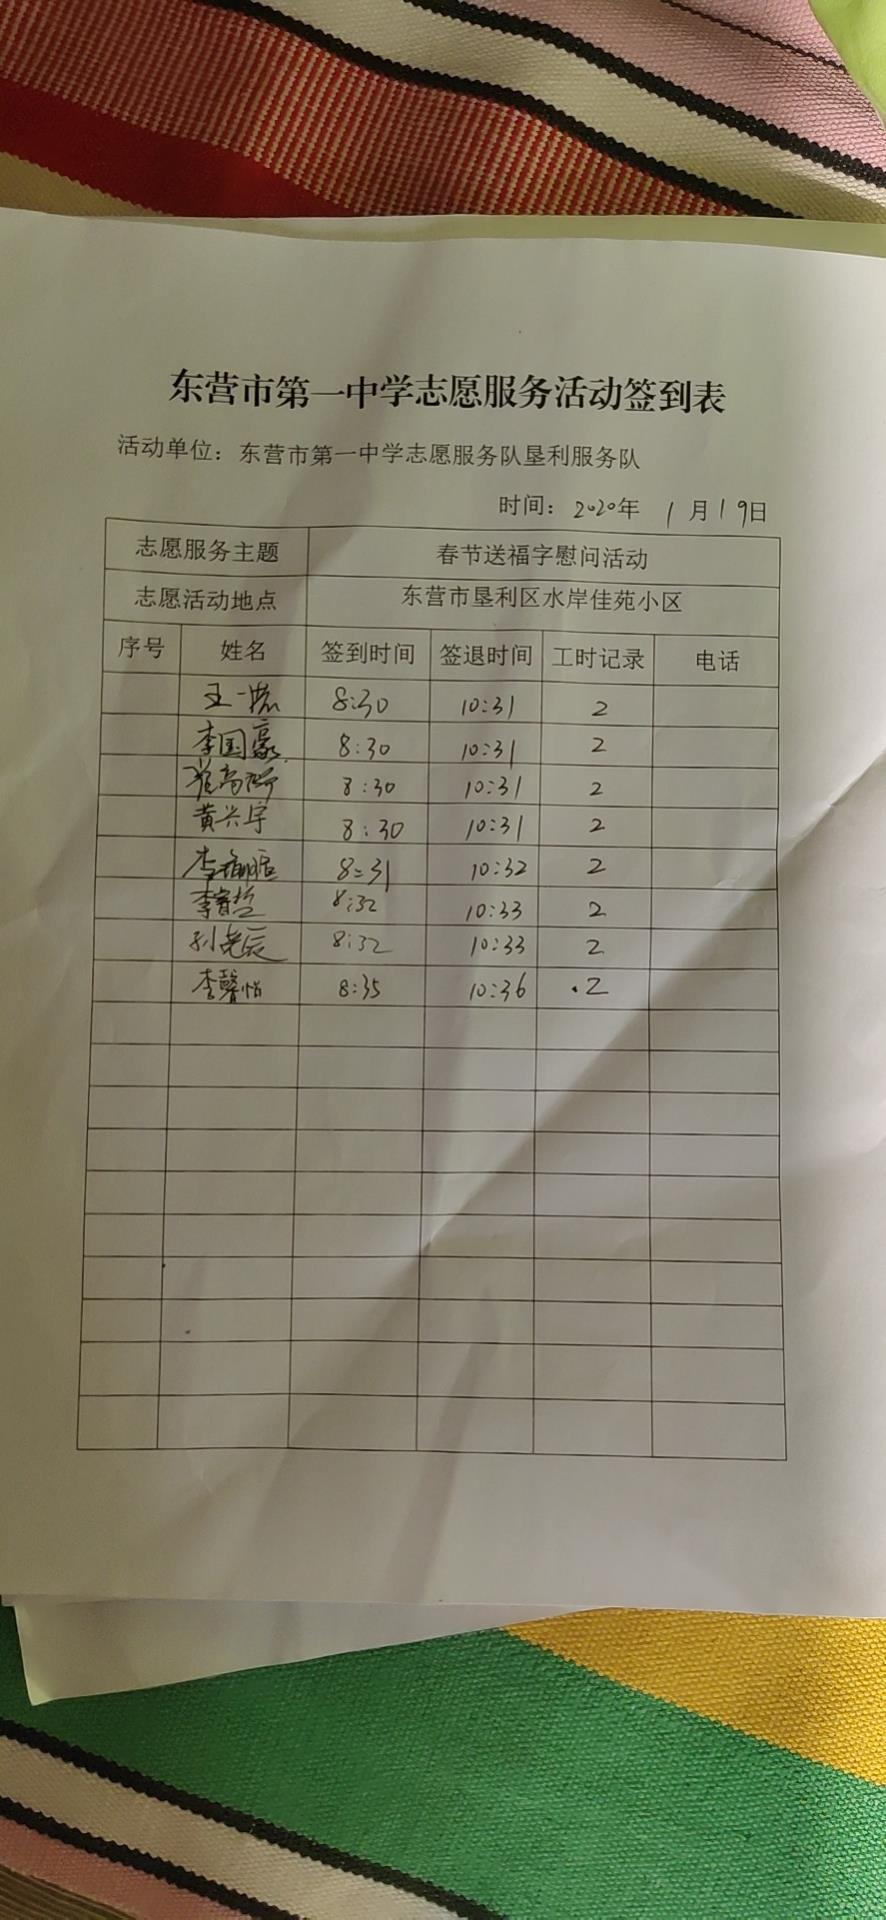 东营市第一中学志愿服务活动签到表
活动单位：东营市第一中学志愿服务队垦利服务队
时间：2020年 1月19日
志愿服务主题 春节送福字慰问活动
志愿活动地点 东营市垦利区水岸佳苑小区
序号 姓名 签到时间 签退时间 工时记录 电话
王一 8:30 10:31 2
李国豪 8:30 10:31 2
8:30 10:31 2
黄兴宇 8:30 10:31 2
李 8:31 10:32 2
李睿哲 8:32 10:33 2
孙 辰 8:32 10:33 2
李馨怡 8:35 10:36 2